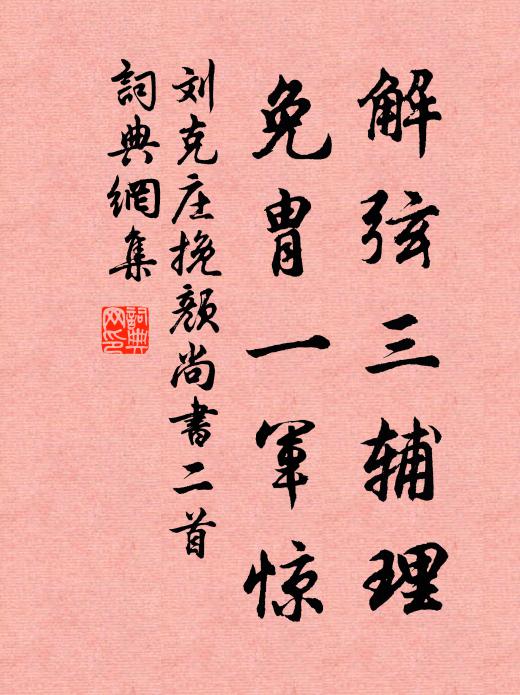 解弦三辅理
免胄一军惊
刘克庄挽颜尚书二首
詞典網集
詞典网印